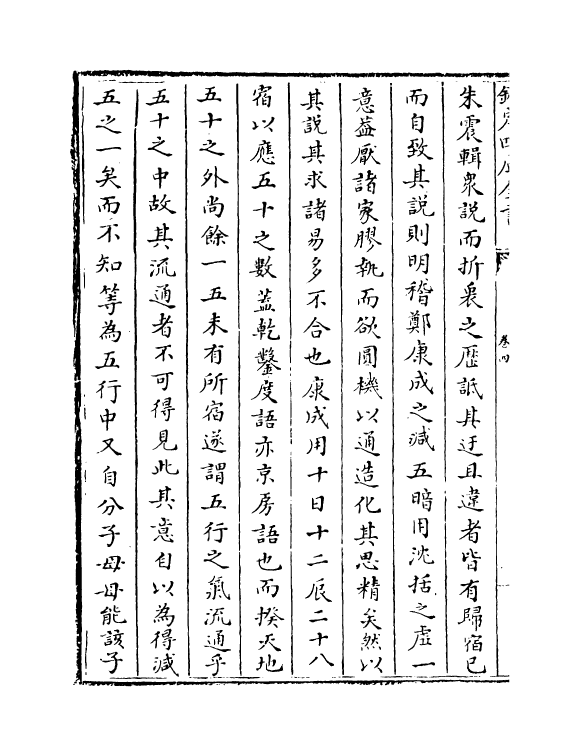 欽定四庫全書
卷四
朱震輯衆説而折衷之歴詆其迂且違者皆有歸宿已
而自致其説則明稽鄭康成之減五暗用沈括之虚一
意葢厭諸家膠執而欲圓機以通造化其思精矣然以
其説其求諸易多不合也康成用十日十二辰二十八
宿以應五十之數蓋乾鑿度語亦京房語也而揆天地
五十之外尚餘一五未有所宿遂謂五行之氣流通乎
五十之中故其流通者不可得見此其意自以為得減
五之一矣而不知等為五行中又自分子母母能該子